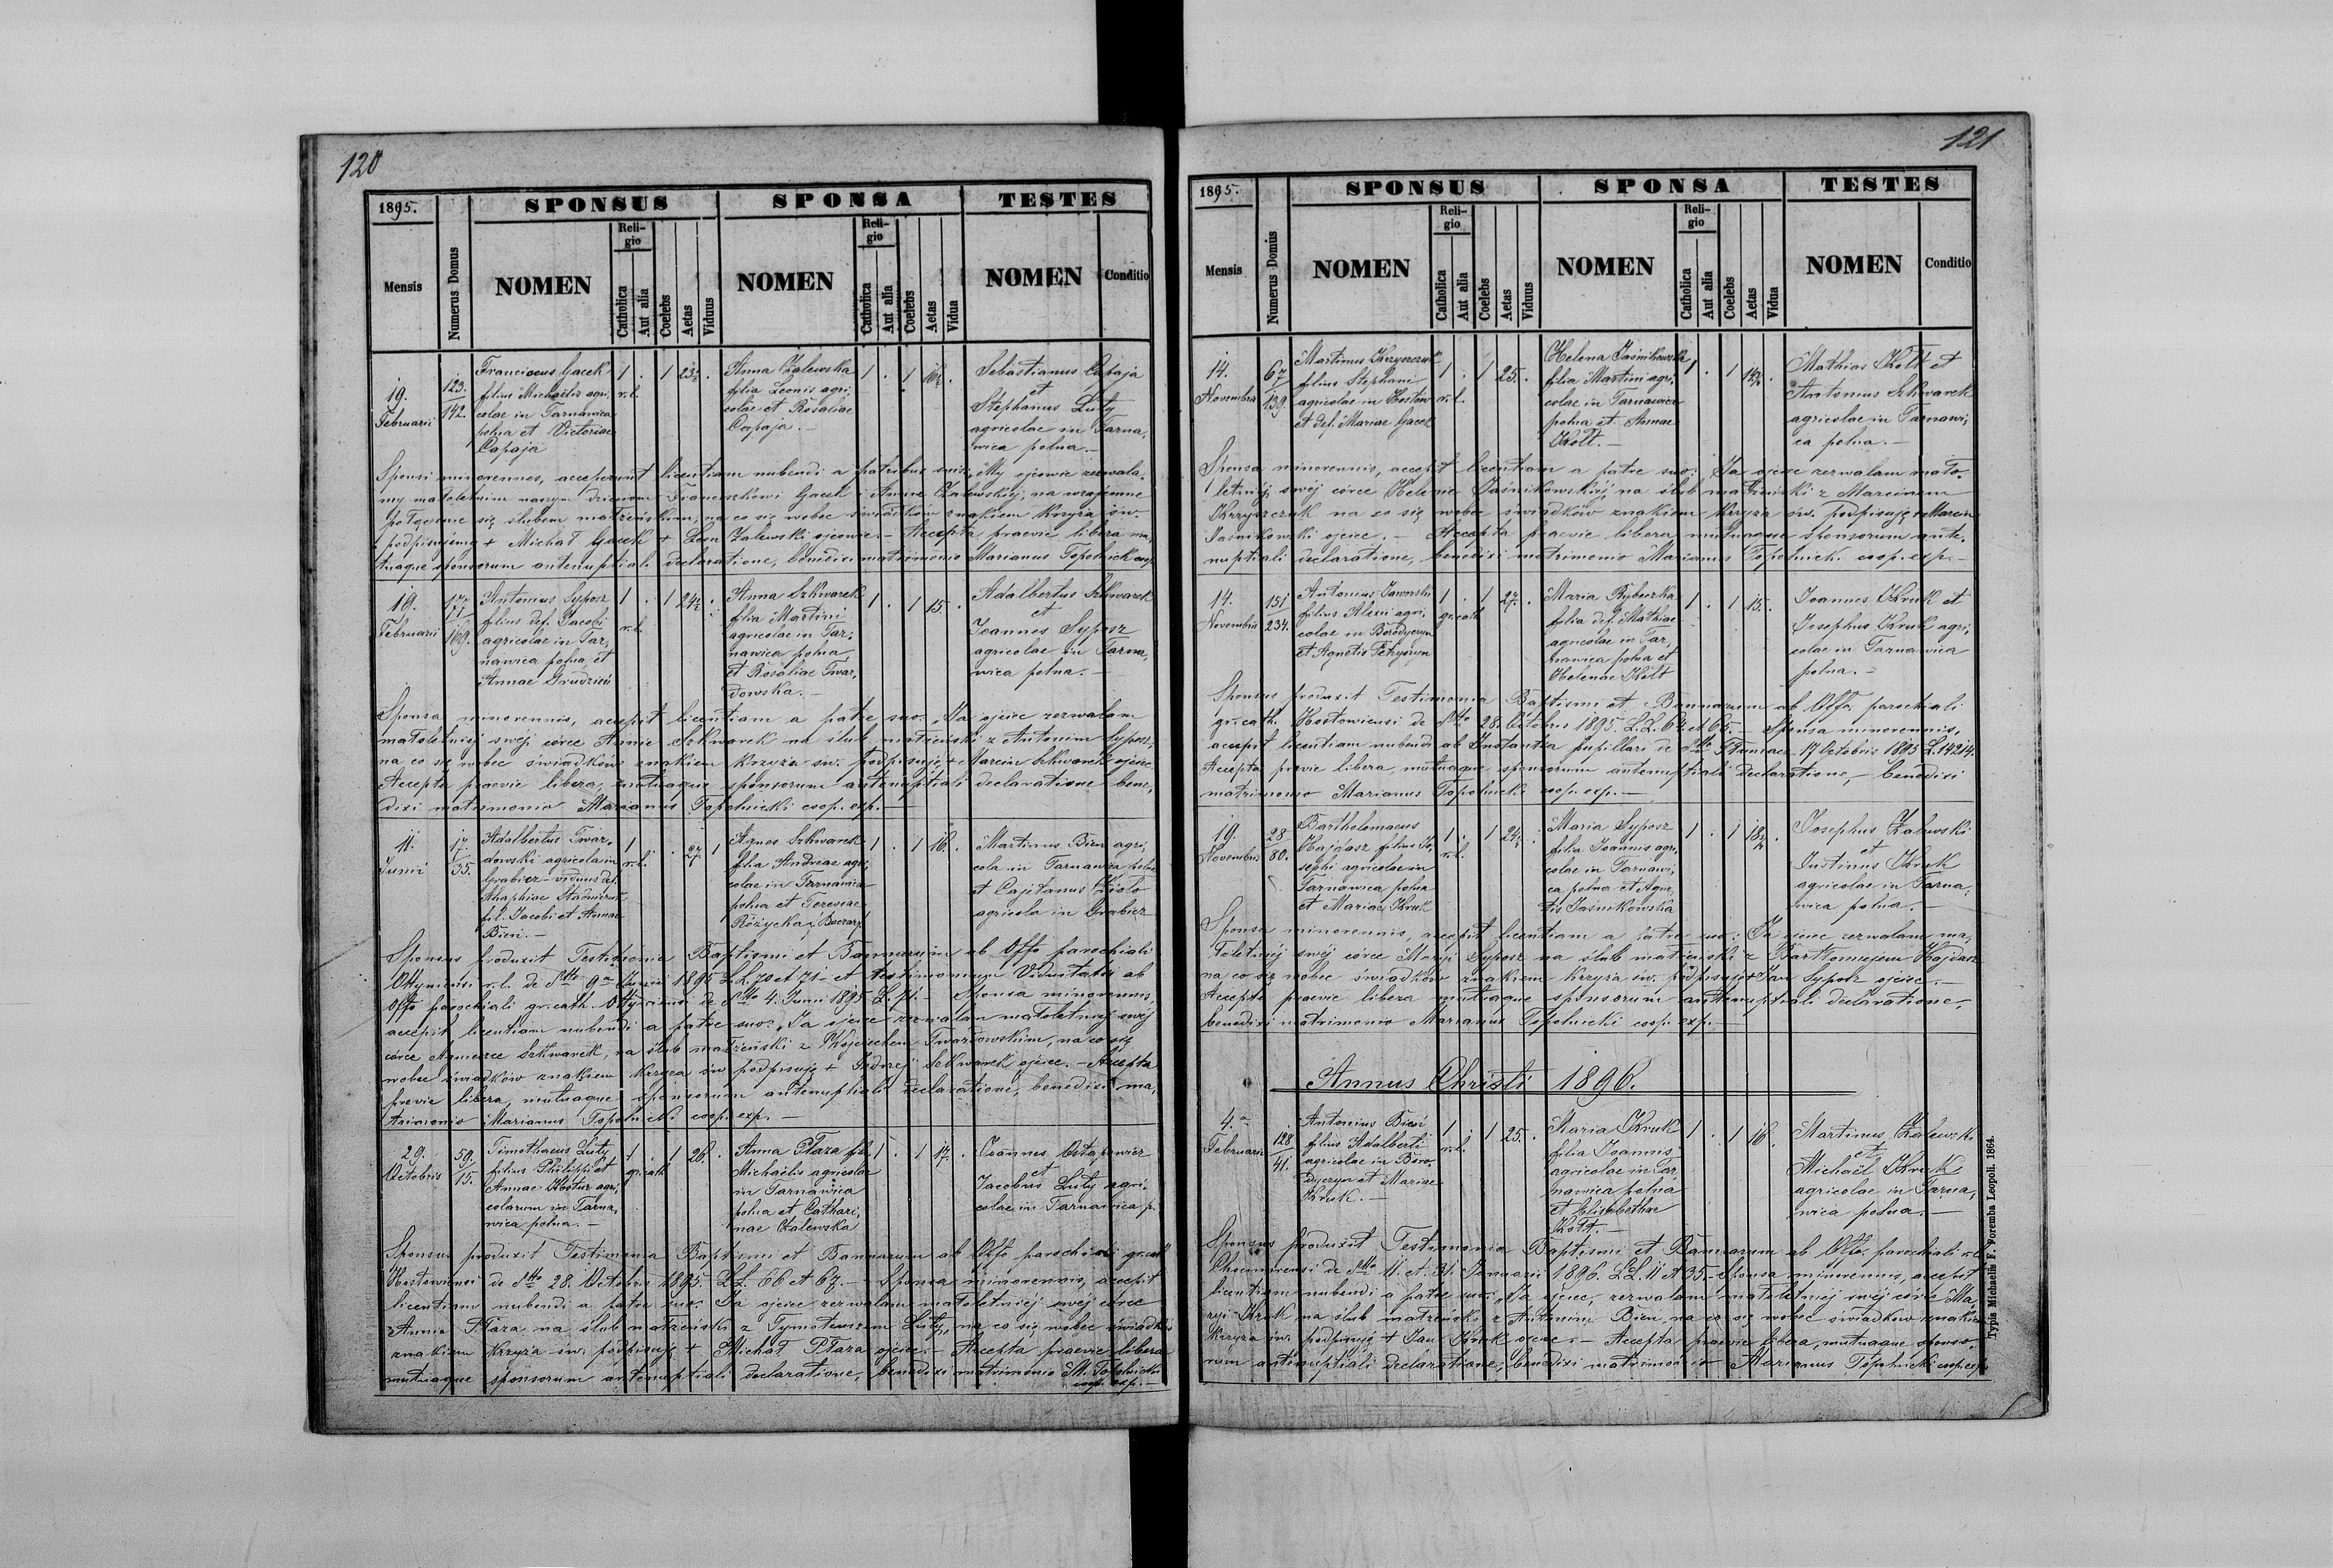 120
1895.
SPONSUS
SPONSA
TESTES
Mensis
Numerus Domus
NOMEN
Religio
Catholica
Aut alia
Coelebs
Aetas
Viduus
NOMEN
Religio
Catholica
Aut alia
Coelebs
Aetas
Vidua
NOMEN
Conditio
19.
Februarii
123.
142.
Franciscus Gacek
filius Michaëlis agri,
colae in Tarnawica
polna et Victoriae
Capaja
1 . 1 23½ .
r.l.
Anna Zalewska
filia Leonis agri,
colae et Rosaliae
Capaja. –
1 . 1
Sebastianus Capaja
et
Stephanus Luty
agricolae in Tarna,
wica polna. –
Sponsi minorennes, acceperunt licentiam nubendi a patribus suis: My ojcowie zezwala,
my małoletnim naszym dzieciom Franciszkowi Gacek i Annie Zalewskiej na wzajemne
połączenie się ślubem małżeńskim, na co się wobec świadków znakiem krzyża św.
podpisujemy + Michał Gacek + Leon Zalewski ojcowie. – Accepta praevie libera mu,
tuaque sponsorum antenuptiali declaratione, benedixi matrimonio Marianus Topolnicki
19.
Februarii
177
169.
Antonius Syposz
filius def. Jacobi
agricolae in Tar,
nawica polna, et
Annae Grudzień
1 . 1 24½ .
r.l.
Anna Szkwarek
filia Martini
agricolae in Tar,
nawica polna
et Rosaliae Twar,
dowska. –
1 . 1 15. .
Adalbertus Szkwarek
et
Joannes Syposz
agricolae in Tarna,
wica polna. –
Sponsa minorennis, accepit licentiam a patre suo: „Ja ojciec zezwalam
małoletniej swej córce Annie Szkwarek na ślub małżeński z Antonim Syposz,
na co się wobec świadków znakiem krzyża św. podpisuję + Marcin Szkwarek ojciec.
Accepta praevie libera, mutuaque sponsorum antenuptiali declaratione bene,
dixi matrimonio Marianus Topolnicki coop. exp. –
11.
Junii
17.
35.
Adalbertus Twar,
dowski agricola in
Grabicz – viduus def.
fil. Jacobi et Annae
Bień. –
1 . . 27 1
r.l.
Agnes Szkwarek
filia Andreae agri,
colae in Tarnawica
polna et Teresiae
Różycka
1 . 1 16. .
Martinus Bień agri,
cola in Tarnawica polna
et Cajetanus Zioło
agricola in Grabicz
Sponsus produxit Testimonia Baptismi et Bannorum ab Offo parochiali
Ottyniensi r.l. de dtto 9ª Junii 1895 L.L. 70 et 71 – et testimonium Viduitatis ab
Offo parochiali gr. cath. Ottyniensi de dtto 4. Junii 1895 L. 71. – Sponsa minorennis,
accepit licentiam nubendi a patre suo: „Ja ojciec zezwalam małoletniej swej
córce Agnieszce Szkwarek, na ślub małżeński z Wojciechem Twardowskim, na co się
wobec świadków znakiem krzyża św. podpisuję + Jędrzej Szkwarek ojciec. – Accepta
previe libera, mutuaque sponsorum antenuptiali declaratione, benedixi ma,
trimonio Marianus Topolnicki coop. exp. –
29.
Octobris
59.
15.
Timothaeus Luty
filius Philippi et
Annae Kostur agri,
colarum in Tarna,
wica polna. –
1 . 1 26. .
gr. cath
Anna Płaza fil.
Michaëlis agricolae
in Tarnawica
polna et Cathari,
nae Zalewska
1 . 1 17. .
Joannes Ostapowicz
et
Jacobus Luty agri,
colae in Tarnawica p.
Sponsus produxit Testimonia Baptismi et Bannorum ab Offo parochiali gr. cath
Hostowiensi de dtto 28. Octobris 1895 LL. 66 et 67. – Sponsa minorennis, accepit
licentiam nubendi a patre suo: Ja ojciec zezwalam małoletniej swej córce
Annie Płaza na ślub małżeński z Tymoteuszem Luty, na co się wobec świadków
znakiem krzyża św. podpisuję + Michał Płaza ojciec. – Accepta praevie libera
mutuaque sponsorum antenuptiali declaratione, benedixi matrimonio M. Topolnicki
coop. exp. –
121
1895.
SPONSUS
SPONSA
TESTES
Mensis
Numerus Domus
NOMEN
Religio
Catholica
Aut alia
Coelebs
Aetas
Viduus
NOMEN
Religio
Catholica
Aut alia
Coelebs
Aetas
Vidua
NOMEN
Conditio
14.
Novembris
67
139.
Martinus Krzyszczuk
filius Stephani
agricolae in Hostow
et def. Mariae Gacek
1 . 1 25. .
r.l.
Helena Jaśnikowska
filia Martini agri,
colae in Tarnawica
polna et Annae
Kott. –
1 . 1
Mathias Kott et
Antonius Szkwarek
agricolae in Tarnawi,
ca polna. –
Sponsa minorennis, accepit licentiam a patre suo: Ja ojciec zezwalam mało,
letniej swej córce Helenie Jaśnikowskiej na ślub małżeński z Marcinem
Krzyszczuk na co się wobec świadków znakiem krzyża św. podpisuję + Marcin
Jaśnikowski ojciec. – Accepta praevie libera mutuaque sponsorum ante,
nuptiali declaratione, benedixi matrimonio Marianus Topolnicki coop. exp. –
14.
Novembris
151
234.
Antonius Jaworski
filius Alexii agri,
colae in Borodyczyn
et Agnetis Petryszyn
1 . 1 27. .
gr. cath
Maria Rybeczka
filia def. Mathiae
agricolae in Tar,
nawica polna et
Helenae Kott
1 . 1 15. .
Joannes Kruk et
Josephus Kruk agri,
colae in Tarnawica
polna. –
Sponsus produxit Testimonia Baptismi et Bannorum ab Offo. parochiali
gr. cath. Hostowiensi de dtto 28. Octobris 1895. L.L. 64 et 65. – Sponsa minorennis,
accepit licentiam nubendi ab Instantia pupillari de dtto Tłumacz 17 Octobris 1895 L. 14214.
Accepta previe libera, mutuaque sponsorum antenuptiali declaratione, – benedixi
matrimonio Marianus Topolnicki coop. exp. –
19.
Novembris
28
80.
Bartholomaeus
Hajdasz filius Jo,
sephi agricolae in
Tarnawica polna
et Mariae Kruk
1 . 1 24½ .
r.l.
Maria Syposz
filia Joannis agri,
colae in Tarnawi,
ca polna et Agne,
tis Jaśnikowska
1 . 1 18½ .
Josephus Zalewski
et
Justinus Kruk
agricolae in Tarna,
wica polna. –
Sponsa minorennis, accepit licentiam a patre suo: Ja ojciec zezwalam ma,
łoletniej swej córce Maryi Syposz na ślub małżeński z Bartłomiejem Hajdasz
na co się wobec świadków znakiem krzyża św. podpisuję + Jan Syposz ojciec. –
Accepta praevie libera mutuaque sponsorum antenuptiali declaratione,
benedixi matrimonio Marianus Topolnicki coop. exp. –
Annus Christi 1896.
4.ª
Februarii
128
41.
Antonius Bień
filius Adalberti
agricolae in Boro,
dyczyn et Mariae
Kruk. –
1 . 1 25. .
r.l.
Maria Kruk
filia Joannis
agricolae in Tar
nawica polna
et Elisabethae
Kott. –
1 . 1 16 .
Martinus Zalewski
et
Michaël Kruk
agricolae in Tarna,
wica polna. –
Sponsus produxit Testimonia Baptismi et Bannorum ab Offo. parochiali r.l.
Chocimirensi de dtto 11. et 31. Januarii 1896. LL. 11 et 35. – Sponsa minorennis, accepit
licentiam nubendi a patre suo: „Ja ojciec, zezwalam małoletniej swej córce Ma,
ryi Kruk na ślub małżeński z Antonim Bień, na co się wobec świadków znakiem
krzyża św. podpisuję + Jan Kruk ojciec. – Accepta praevie libera, mutuaque sponso,
rum antenuptiali declaratione, benedixi matrimonio Marianus Topolnicki coop. exp.
Typis Michaelis F. Poremba Leopoli. 1864.